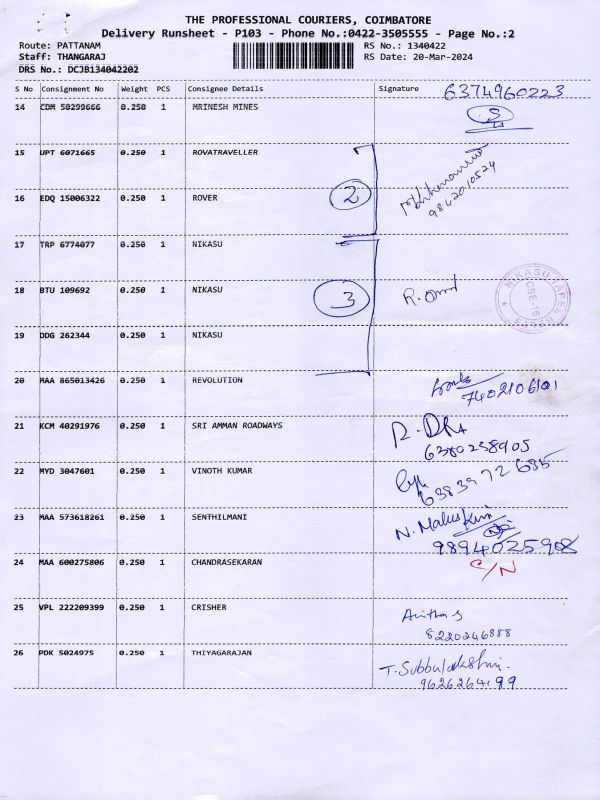 THE PROFESSIONAL COURIERS, COIMBATORE
Delivery Runsheet - P103 - Phone No.:0422-3505555 - Page No.:2
Route: PATTANAM RS No.: 1340422
Staff: THANGARAJ RS Date: 20-Mar-2024
DRS No.: DCJB134042202
S No Consignment No Weight PCS Consignee Details Signature 6374960223
14 CDM 50299666 0.250 1 MRINESH MINES
15 UPT 6071665 0.250 1 ROVATRAVELLER
16 EDQ 15006322 0.250 1 ROVER 2 9842010524
17 TRP 6774077 0.250 1 NIKASU
18 BTU 109692 0.250 1 NIKASU 3
19 DDG 262344 0.250 1 NIKASU
20 MAA 865013426 0.250 1 REVOLUTION
7402106101
21 KCM 40291976 0.250 1 SRI AMMAN ROADWAYS
6380258905
22 MYD 3047601 0.250 1 VINOTH KUMAR
638397 2685
23 MAA 573618261 0.250 1 SENTHILMANI
9894025908
24 MAA 600275806 0.250 1 CHANDRASEKARAN C/N
25 VPL 222209399 0.250 1 CRISHER Anitha S
8220246888
26 PDK 5024975 0.250 1 THIYAGARAJAN T. Subbulakshmi.
9626264199